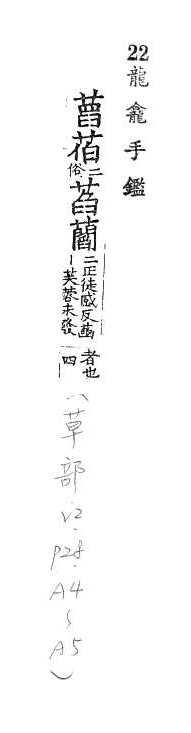 22龍龕手鑑
二俗萏
二正徒感反菡
丨芙蓉未發
者也
四
(草部.V2.P28.A4~A5)